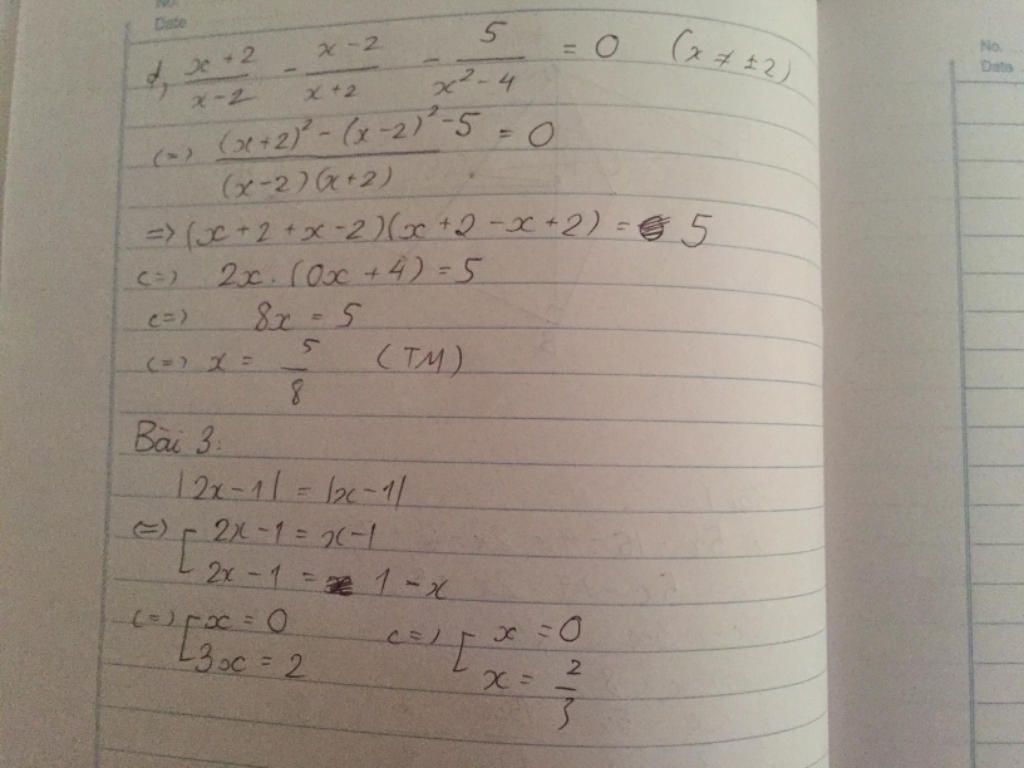 No.
Date
d, \frac{x+2}{x-2} - \frac{x-2}{x+2} - \frac{5}{x^2-4} = 0 (x ≠ ±2)
(=) \frac{(x+2)^2 - (x-2)^2 - 5}{(x-2)(x+2)} = 0
=> (x+2+x-2)(x+2-x+2) = 5
(=) 2x.(0x+4) = 5
(=) 8x = 5
(=) x = \frac{5}{8} (TM)
Bài 3:
|2x-1| = |x-1|
(=) [ 2x-1 = x-1
2x-1 = 1-x
(=) [ x = 0 (=) [ x = 0
3x = 2 x = \frac{2}{3}
No.
Date